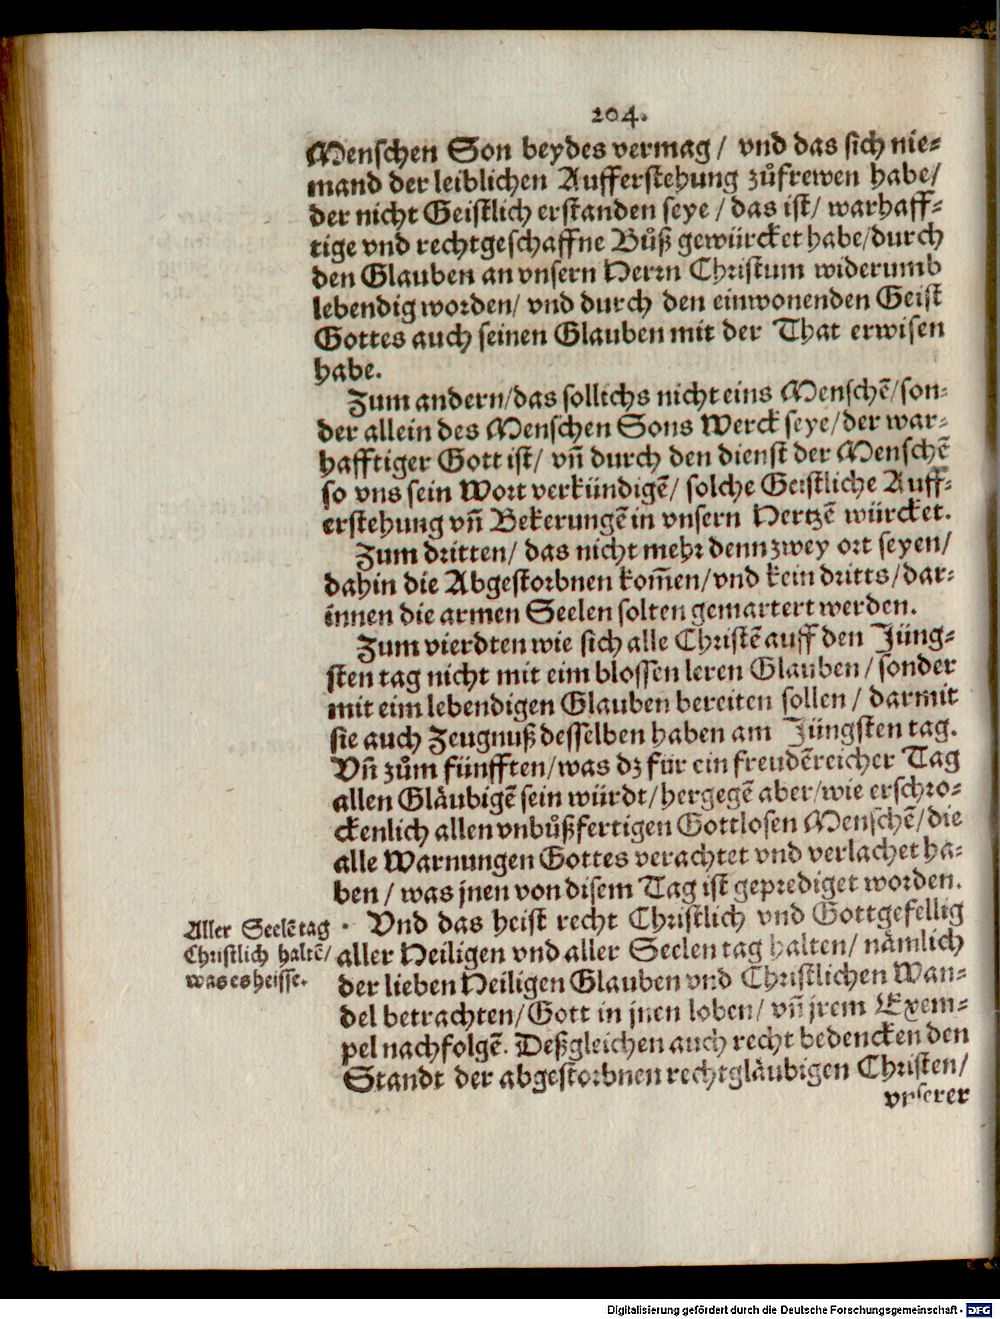 204.
Menschen Son beydes vermag / vnd das sich nie⸗
mand der leiblichen Aufferstehung zůfrewen habe/
der nicht Geistlich erstanden seye / das ist/ warhaff⸗
tige vnd rechtgeschaffne Bůß gewürcket habe/durch
den Glauben an vnsern Herrn Christum widerumb
lebendig worden/ vnd durch den einwonenden Geist
Gottes auch seinen Glauben mit der That erwisen
habe.
Zum andern/das sollichs nicht eins Menschẽ/son⸗
der allein des Menschen Sons Werck seye/der war⸗
hafftiger Gott ist/ vñ durch den dienst der Menschẽ
so vns sein Wort verkündigẽ/ solche Geistliche Auff⸗
erstehung vñ Bekerungẽ in vnsern Hertzẽ würcket.
Zum dritten/ das nicht mehr denn zwey ort seyen/
dahin die Abgestorbnen kom̃en/vnd kein dritts/dar⸗
innen die armen Seelen solten gemartert werden.
Zum vierdten wie sich alle Christẽ auff den Jüng⸗
sten tag nicht mit eim blossen leren Glauben/ sonder
mit eim lebendigen Glauben bereiten sollen/ darmit
sie auch Zeugnuß desselben haben am Jüngsten tag.
Vñ zům fünfften/was dz für ein freudẽreicher Tag
allen Gläubigẽ sein würdt/hergegẽ aber/wie erschro⸗
ckenlich allen vnbůßfertigen Gottlosen Menschẽ/die
alle Warnungen Gottes verachtet vnd verlachet ha⸗
ben / was jnen von disem Tag ist geprediget worden.
Vnd das heist recht Christlich vnd Gottgefellig
aller Heiligen vnd aller Seelen tag halten/ nämlich
der lieben Heiligen Glauben vnd Christlichen Wan⸗
del betrachten/ Gott in jnen loben/ vñ jrem Exem⸗
pel nachfolgẽ. Deßgleichen auch recht bedencken den
Standt der abgestorbnen rechtgläubigen Christen/
vnserer
Aller Seelẽ tag
Christlich haltẽ/
was es heisse.
Digitalisierung gefördert durch die Deutsche Forschungsgemeinschaft - DFG